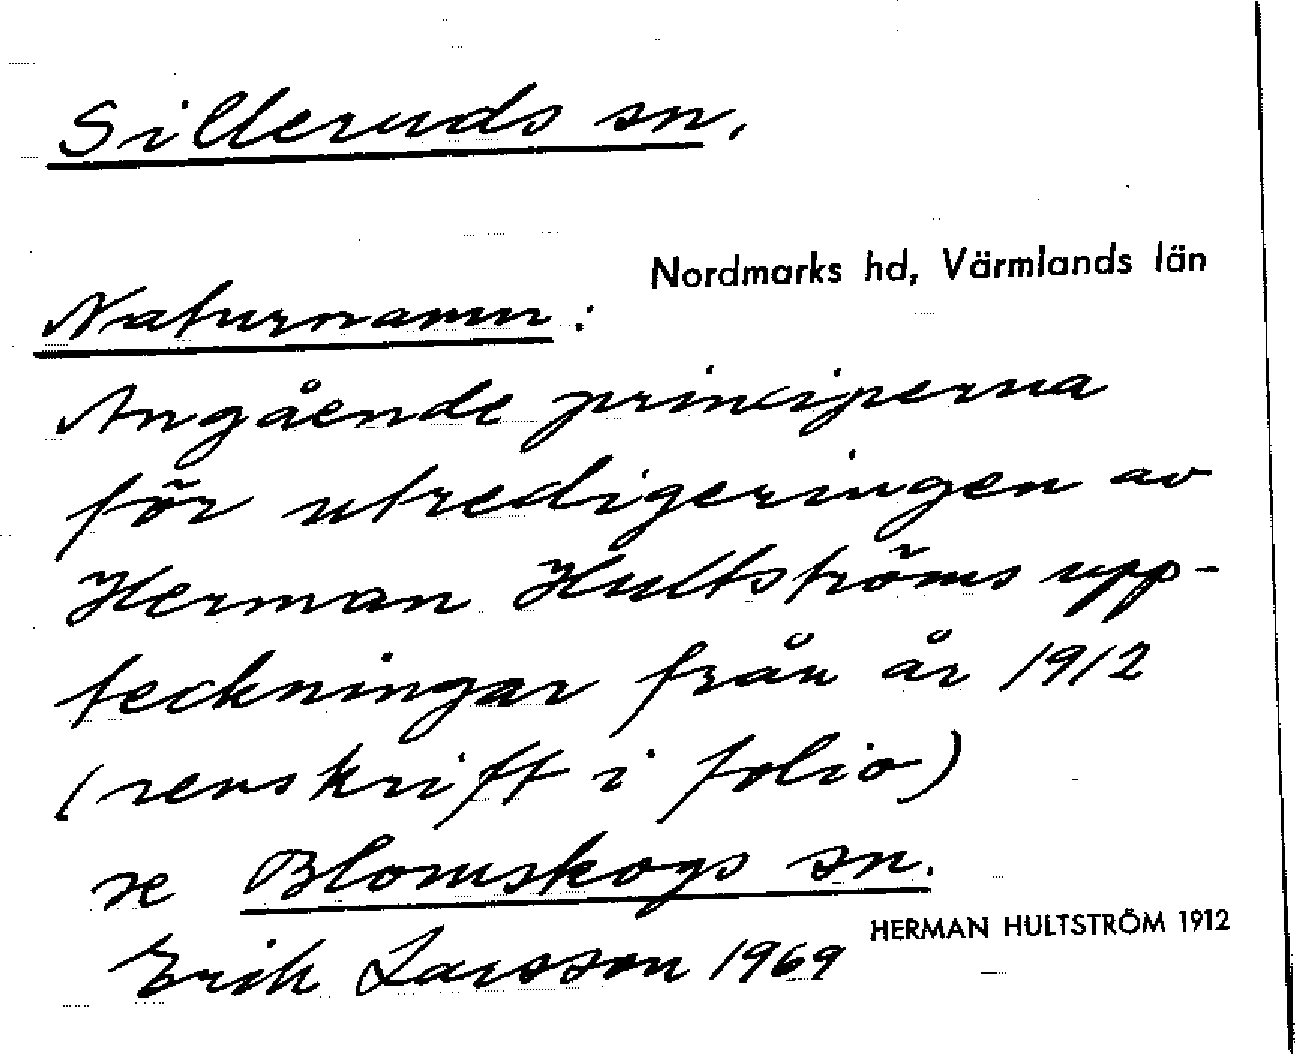 Silleruds sn.
Nordmarks hd, Värmlands län
Naturnamn:
Angående principerna
för utredigeringen av
Herman Hultströms upp-
teckningar från år 1912
(renskrift i folio)
se Blomskogs sn.
HERMAN HULTSTRÖM 1912
Erik Larsson 1969